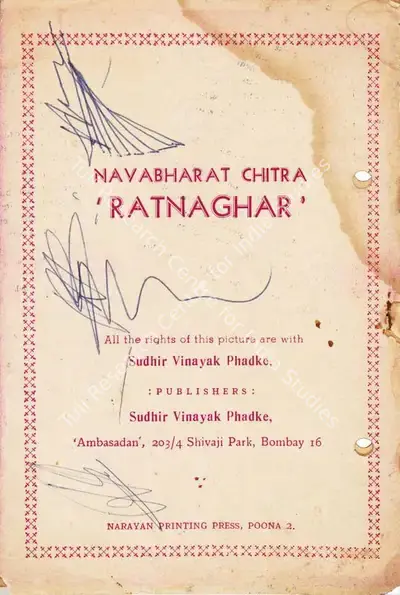 NAVABHARAT CHITRA
'RATNAGHAR'
All the rights of this picture are with
Sudhir Vinayak Phadke,
: PUBLISHERS :
Sudhir Vinayak Phadke,
'Ambasadan', 203/4 Shivaji Park, Bombay 16
NARAYAN PRINTING PRESS, POONA 2.